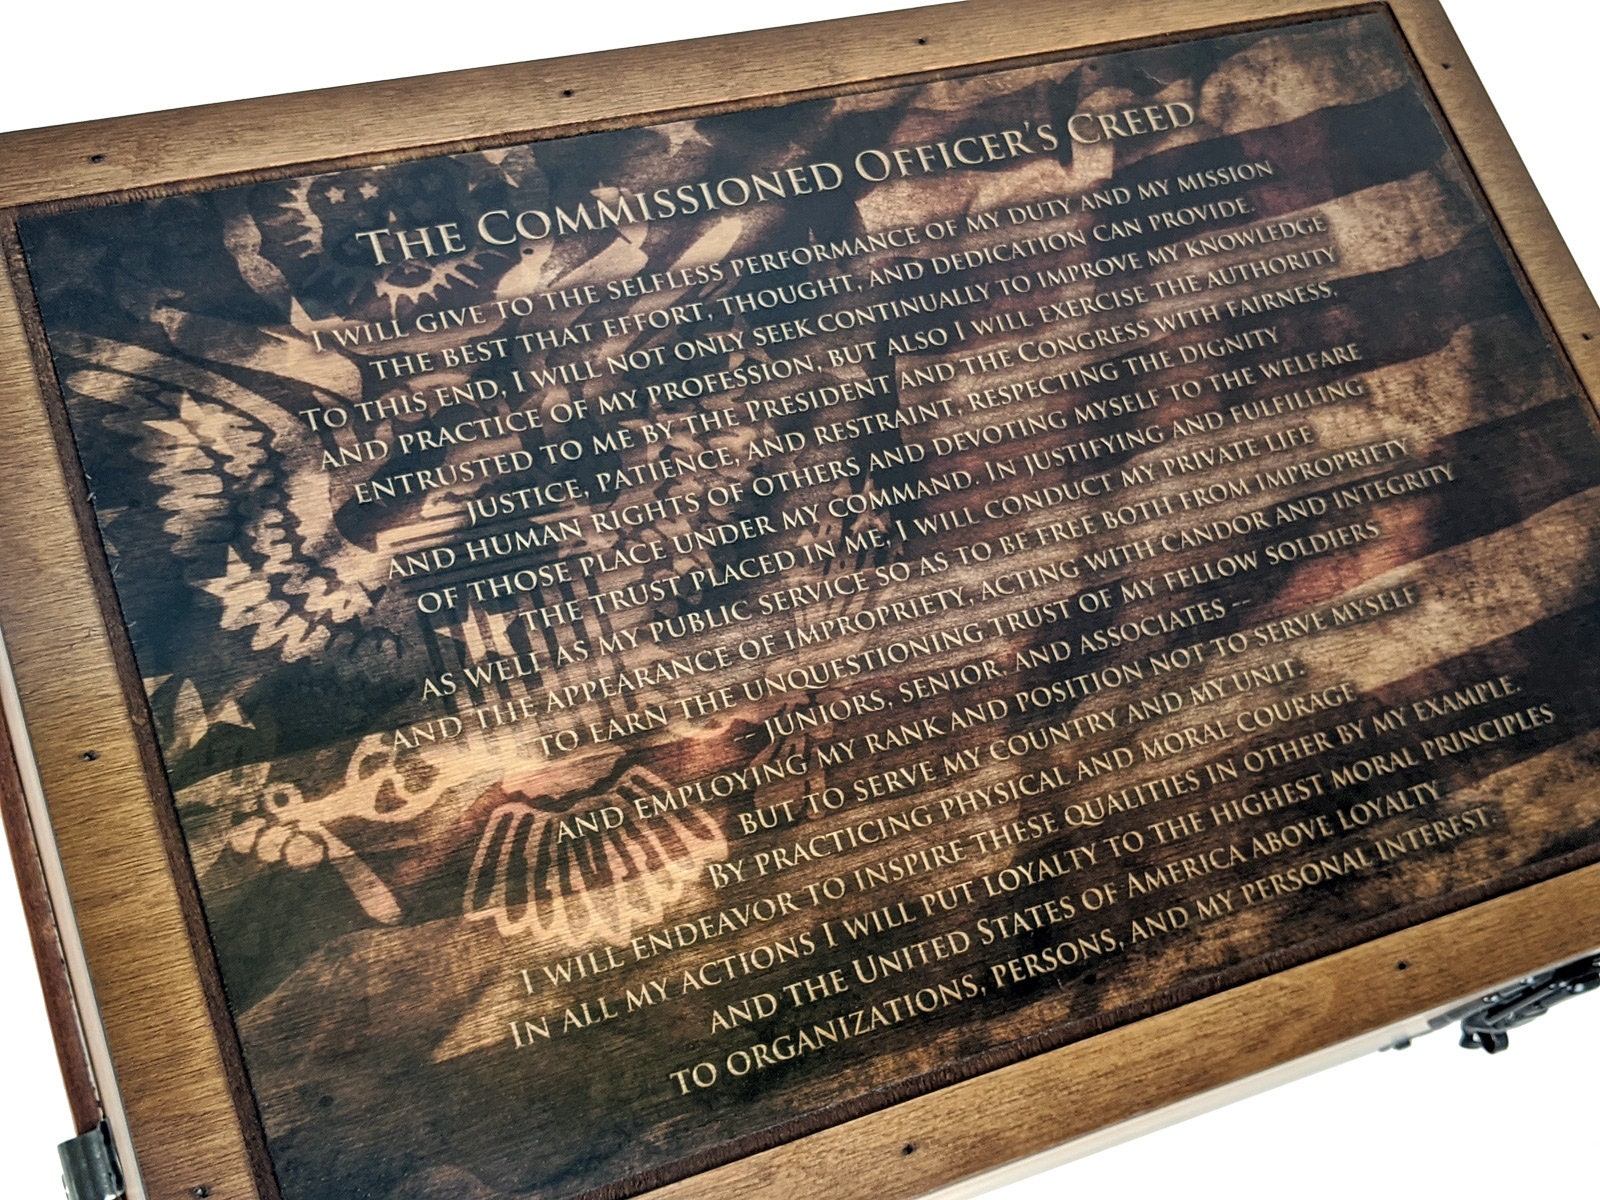 The Commissioned Officer's Creed
I will give to the selfless performance of my duty and my mission
the best that effort, thought, and dedication can provide.
To this end, I will not only seek continually to improve my knowledge
and practice of my profession, but also I will exercise the authority
entrusted to me by the President and the Congress with fairness,
justice, patience, and restraint, respecting the dignity
and human rights of others and devoting myself to the welfare
of those place under my command. In justifying and fulfilling
the trust placed in me, I will conduct my private life
as well as my public service so as to be free both from impropriety
and the appearance of impropriety, acting with candor and integrity
to earn the unquestioning trust of my fellow soldiers
-- juniors, senior, and associates --
and employing my rank and position not to serve myself
but to serve my country and my unit.
By practicing physical and moral courage
I will endeavor to inspire these qualities in other by my example.
In all my actions I will put loyalty to the highest moral principles
and the United States of America above loyalty
to organizations, persons, and my personal interest.